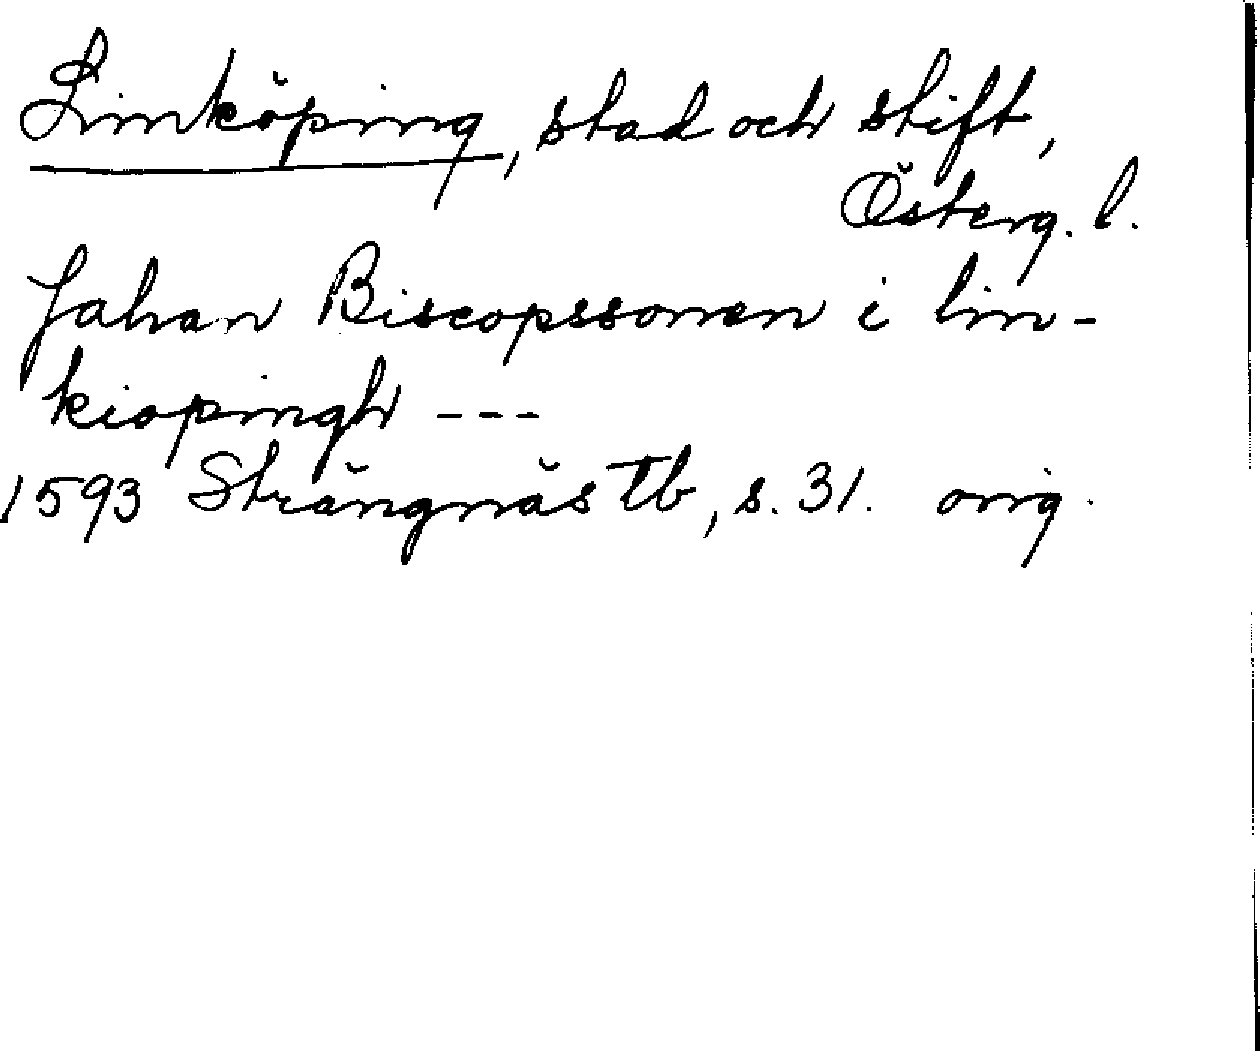 Linköping, stad och stift,
Österg. l.
Jahan Biscopssonen i lin-
kiopingh ---
1593 Strängnäs Tb, s. 31. orig.